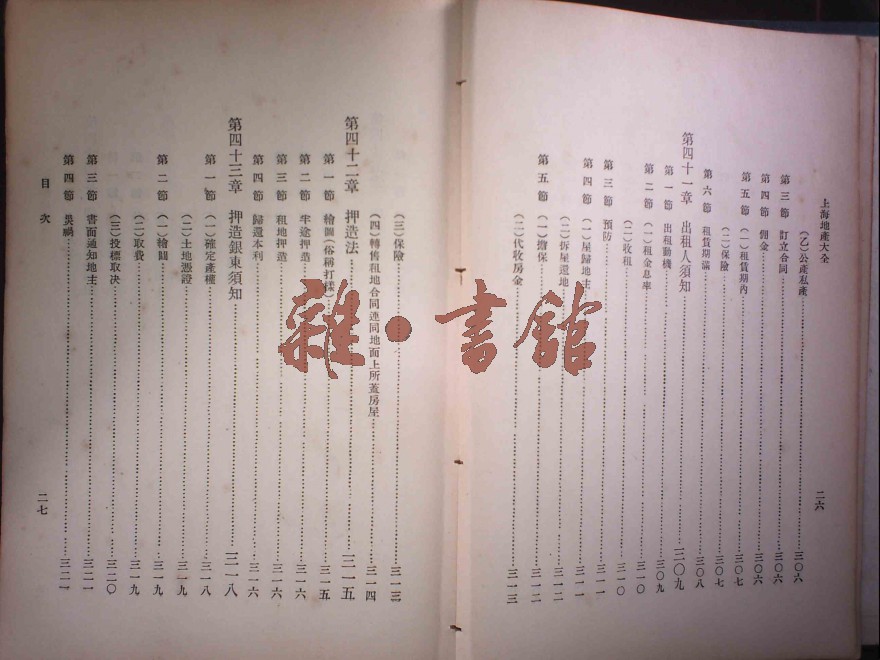 上海地產大全
二六
(乙)公產私產……三〇六
第三節 訂立合同……三〇六
第四節 佣金……三〇六
第五節 (一)租賃期內……三〇七
(二)保險……三〇七
第六節 租賃期滿……三〇八
第四十一章 出租人須知……三〇九
第一節 出租動機……三〇九
第二節 (一)租金息率……三一〇
(二)收租……三一〇
第三節 預防……三一一
第四節 (一)屋歸地主……三一二
(二)拆屋還地……三一二
第五節 (一)擔保……三一二
(二)代收房金……三一三
(三)保險……三一三
(四)轉售租地合同連同地面上所蓋房屋……三一四
第四十二章 押造法……三一五
第一節 繪圖(俗稱打樣)……三一五
第二節 半途押造……三一六
第三節 租地押造……三一六
第四節 歸還本利……三一六
第四十三章 押造銀東須知……三一八
第一節 (一)確定產權……三一八
(二)土地憑證……三一九
第二節 (一)繪圖……三一九
(二)取費……三一九
(三)投標取決……三二〇
第三節 書面通知地主……三二一
第四節 災禍……三二一
目次
二七
雜·書館